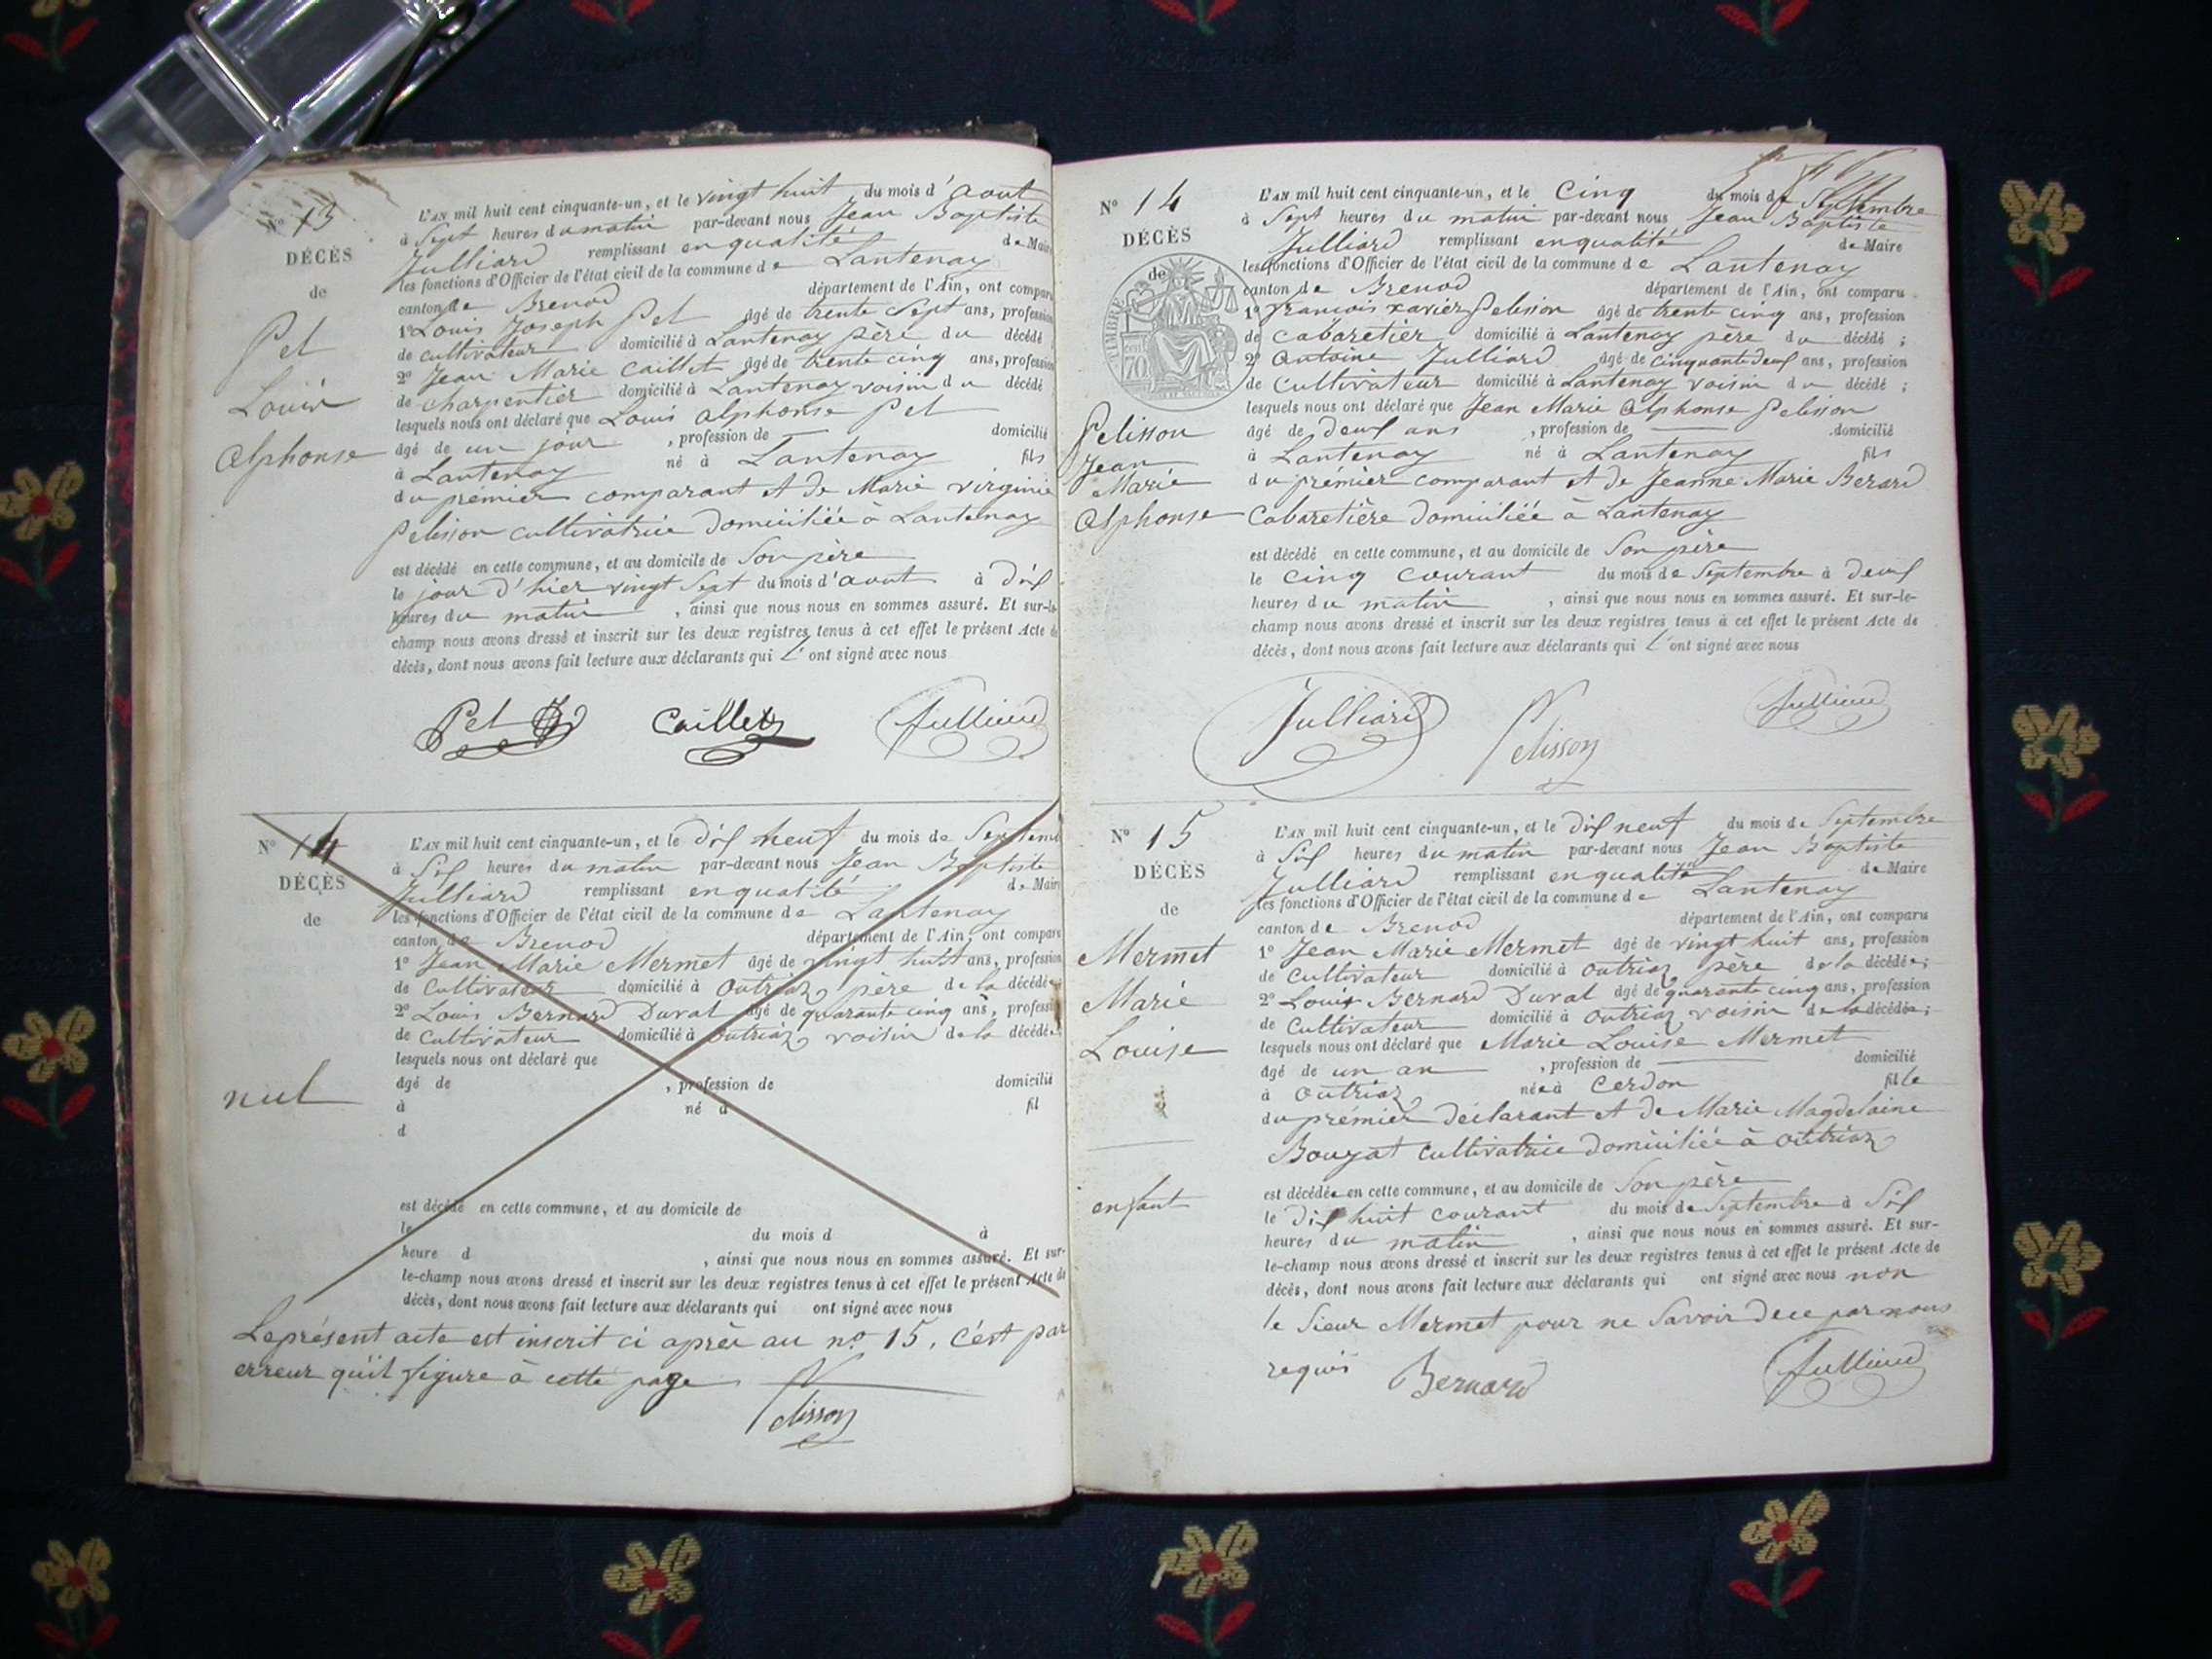 N° 13
DÉCÈS
de
Pet
Louis
Alphonse
L'AN mil huit cent cinquante-un, et le vingt huit du mois d'aout
à Sept heures du matin par-devant nous Jean Baptiste
Julliard remplissant en qualité de Maire
les fonctions d'Officier de l'état civil de la commune de Lantenay
canton de Brenod département de l'Ain, ont comparu
1° Louis Joseph Pet âgé de trente Sept ans, profession
de cultivateur domicilié à Lantenay père du décédé
2° Jean Marie Caillet âgé de trente cinq ans, profession
de charpentier domicilié à Lantenay voisin du décédé
lesquels nous ont déclaré que Louis alphonse Pet
âgé de un jour , profession de — domicilié
à Lantenay né à Lantenay fils
du premier comparant et de Marie virginie
Pelisson cultivatrice domiciliée à Lantenay
est décédé en cette commune, et au domicile de Son père
le jour d'hier vingt Sept du mois d'aout à dix
heures du matin , ainsi que nous nous en sommes assuré. Et sur-le-
champ nous avons dressé et inscrit sur les deux registres tenus à cet effet le présent Acte de
décès, dont nous avons fait lecture aux déclarants qui l'ont signé avec nous
Pet Caillet Julliard
N° 14
DÉCÈS
de
nul
L'AN mil huit cent cinquante-un, et le dix neuf du mois de Septemb
à Six heures du matin par-devant nous Jean Baptiste
Julliard remplissant en qualité de Maire
les fonctions d'Officier de l'état civil de la commune de Lantenay
canton de Brenod département de l'Ain, ont comparu
1° Jean Marie Mermet âgé de vingt huit ans, profession
de Cultivateur domicilié à Outriaz père de la décédée
2° Louis Bernard Duval âgé de quarante cinq ans, profession
de Cultivateur domicilié à Outriaz voisin de la décédée
lesquels nous ont déclaré que
âgé de , profession de domicilié
à né à fil
d
est décédé en cette commune, et au domicile de
le du mois d à
heure d , ainsi que nous nous en sommes assuré. Et sur-
le-champ nous avons dressé et inscrit sur les deux registres tenus à cet effet le présent Acte de
décès, dont nous avons fait lecture aux déclarants qui ont signé avec nous
Le présent acte est inscrit ci après au n° 15. C'est par
erreur qu'il figure à cette page
Pelisson
N° 14
DÉCÈS
de
TIMBRE
70
Pelisson
Jean
Marie
Alphonse
L'AN mil huit cent cinquante-un, et le Cinq du mois de Septembre
à Sept heures du matin par-devant nous Jean Baptiste
Julliard remplissant en qualité de Maire
les fonctions d'Officier de l'état civil de la commune de Lantenay
canton de Brenod département de l'Ain, ont comparu
1° francois xavier Pelisson âgé de trente cinq ans, profession
de Cabaretier domicilié à Lantenay père du décédé ;
2° Antoine Julliard âgé de cinquante deux ans, profession
de Cultivateur domicilié à Lantenay voisin du décédé ;
lesquels nous ont déclaré que Jean Marie Alphonse Pelisson
âgé de deux ans , profession de — domicilié
à Lantenay né à Lantenay fils
du prémier comparant et de Jeanne Marie Berard
Cabaretière domiciliée à Lantenay
est décédé en cette commune, et au domicile de Son père
le cinq courant du mois de Septembre à deux
heures du matin , ainsi que nous nous en sommes assuré. Et sur-le-
champ nous avons dressé et inscrit sur les deux registres tenus à cet effet le présent Acte de
décès, dont nous avons fait lecture aux déclarants qui l'ont signé avec nous
Julliard Pelisson Julliard
N° 15
DÉCÈS
de
Mermet
Marie
Louise
enfant
L'AN mil huit cent cinquante-un, et le dix neuf du mois de Septembre
à Six heures du matin par-devant nous Jean Baptiste
Julliard remplissant en qualité de Maire
les fonctions d'Officier de l'état civil de la commune de Lantenay
canton de Brenod département de l'Ain, ont comparu
1° Jean Marie Mermet âgé de vingt huit ans, profession
de Cultivateur domicilié à Outriaz père de la décédée ;
2° Louis Bernard Duval âgé de quarente cinq ans, profession
de Cultivateur domicilié à Outriaz voisin de la décédée ;
lesquels nous ont déclaré que Marie Louise Mermet
âgé de un an , profession de — domicilié
à Outriaz née à Cerdon fille
du prémier déclarant et de Marie Magdelaine
Bouzat cultivatrice domiciliée à Outriaz
est décédée en cette commune, et au domicile de Son père
le dix huit courant du mois de Septembre à Six
heures du matin , ainsi que nous nous en sommes assuré. Et sur-
le-champ nous avons dressé et inscrit sur les deux registres tenus à cet effet le présent Acte de
décès, dont nous avons fait lecture aux déclarants qui ont signé avec nous non
le Sieur Mermet pour ne Savoir de ce par nous
requis Bernard Julliard